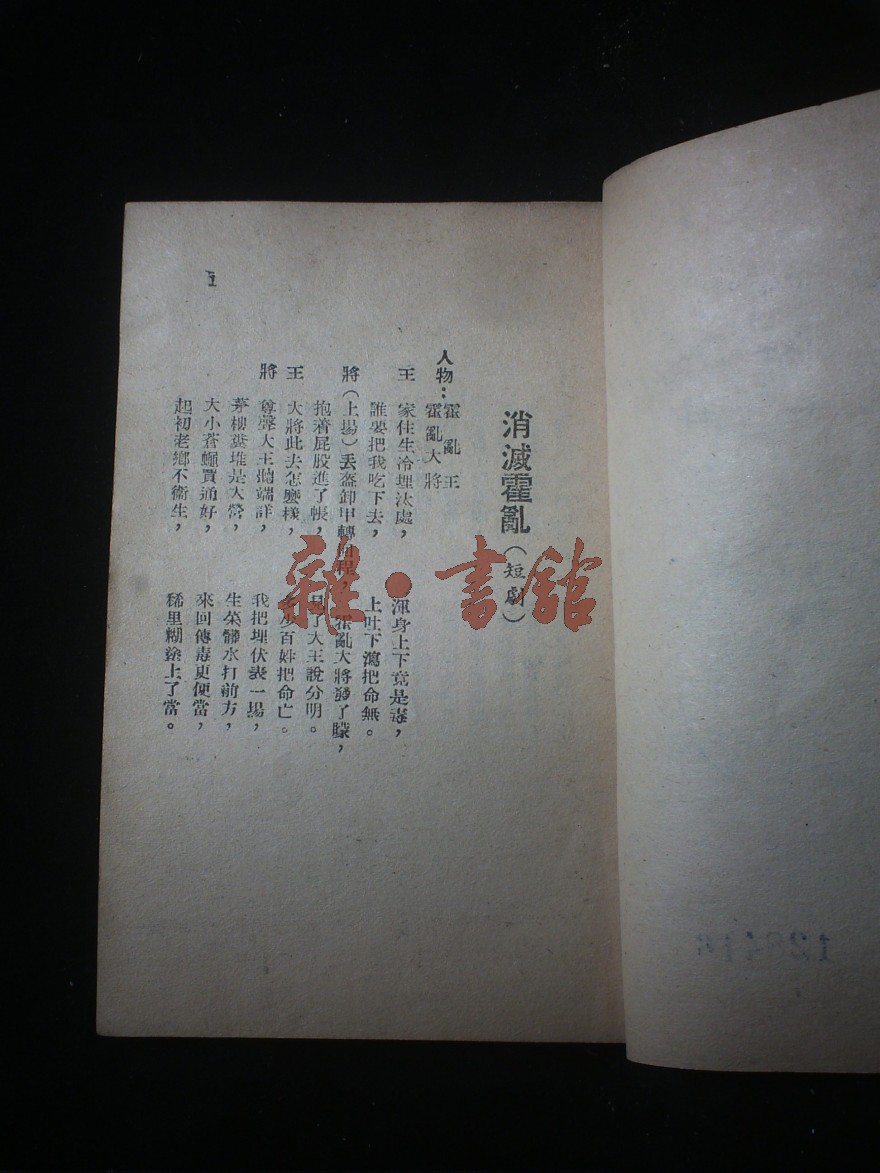 消滅霍亂（短劇）
人物：霍亂王
霍亂大將
王　家住生冷埋汰處，　渾身上下竟是毒，
誰要把我吃下去，　上吐下瀉把命無。
將（上場）丟盔卸甲轉回程，　霍亂大將發了矇，
抱着屁股進了帳，　見了大王說分明。
王　大將此去怎麼樣，　多少百姓把命亡。
將　尊聲大王聽端詳，　我把埋伏表一場，
茅樓糞堆是大營，　生菜髒水打前方，
大小蒼蠅買通好，　來回傳毒更便當，
起初老鄉不衛生，　稀里糊塗上了當。
雜·書館